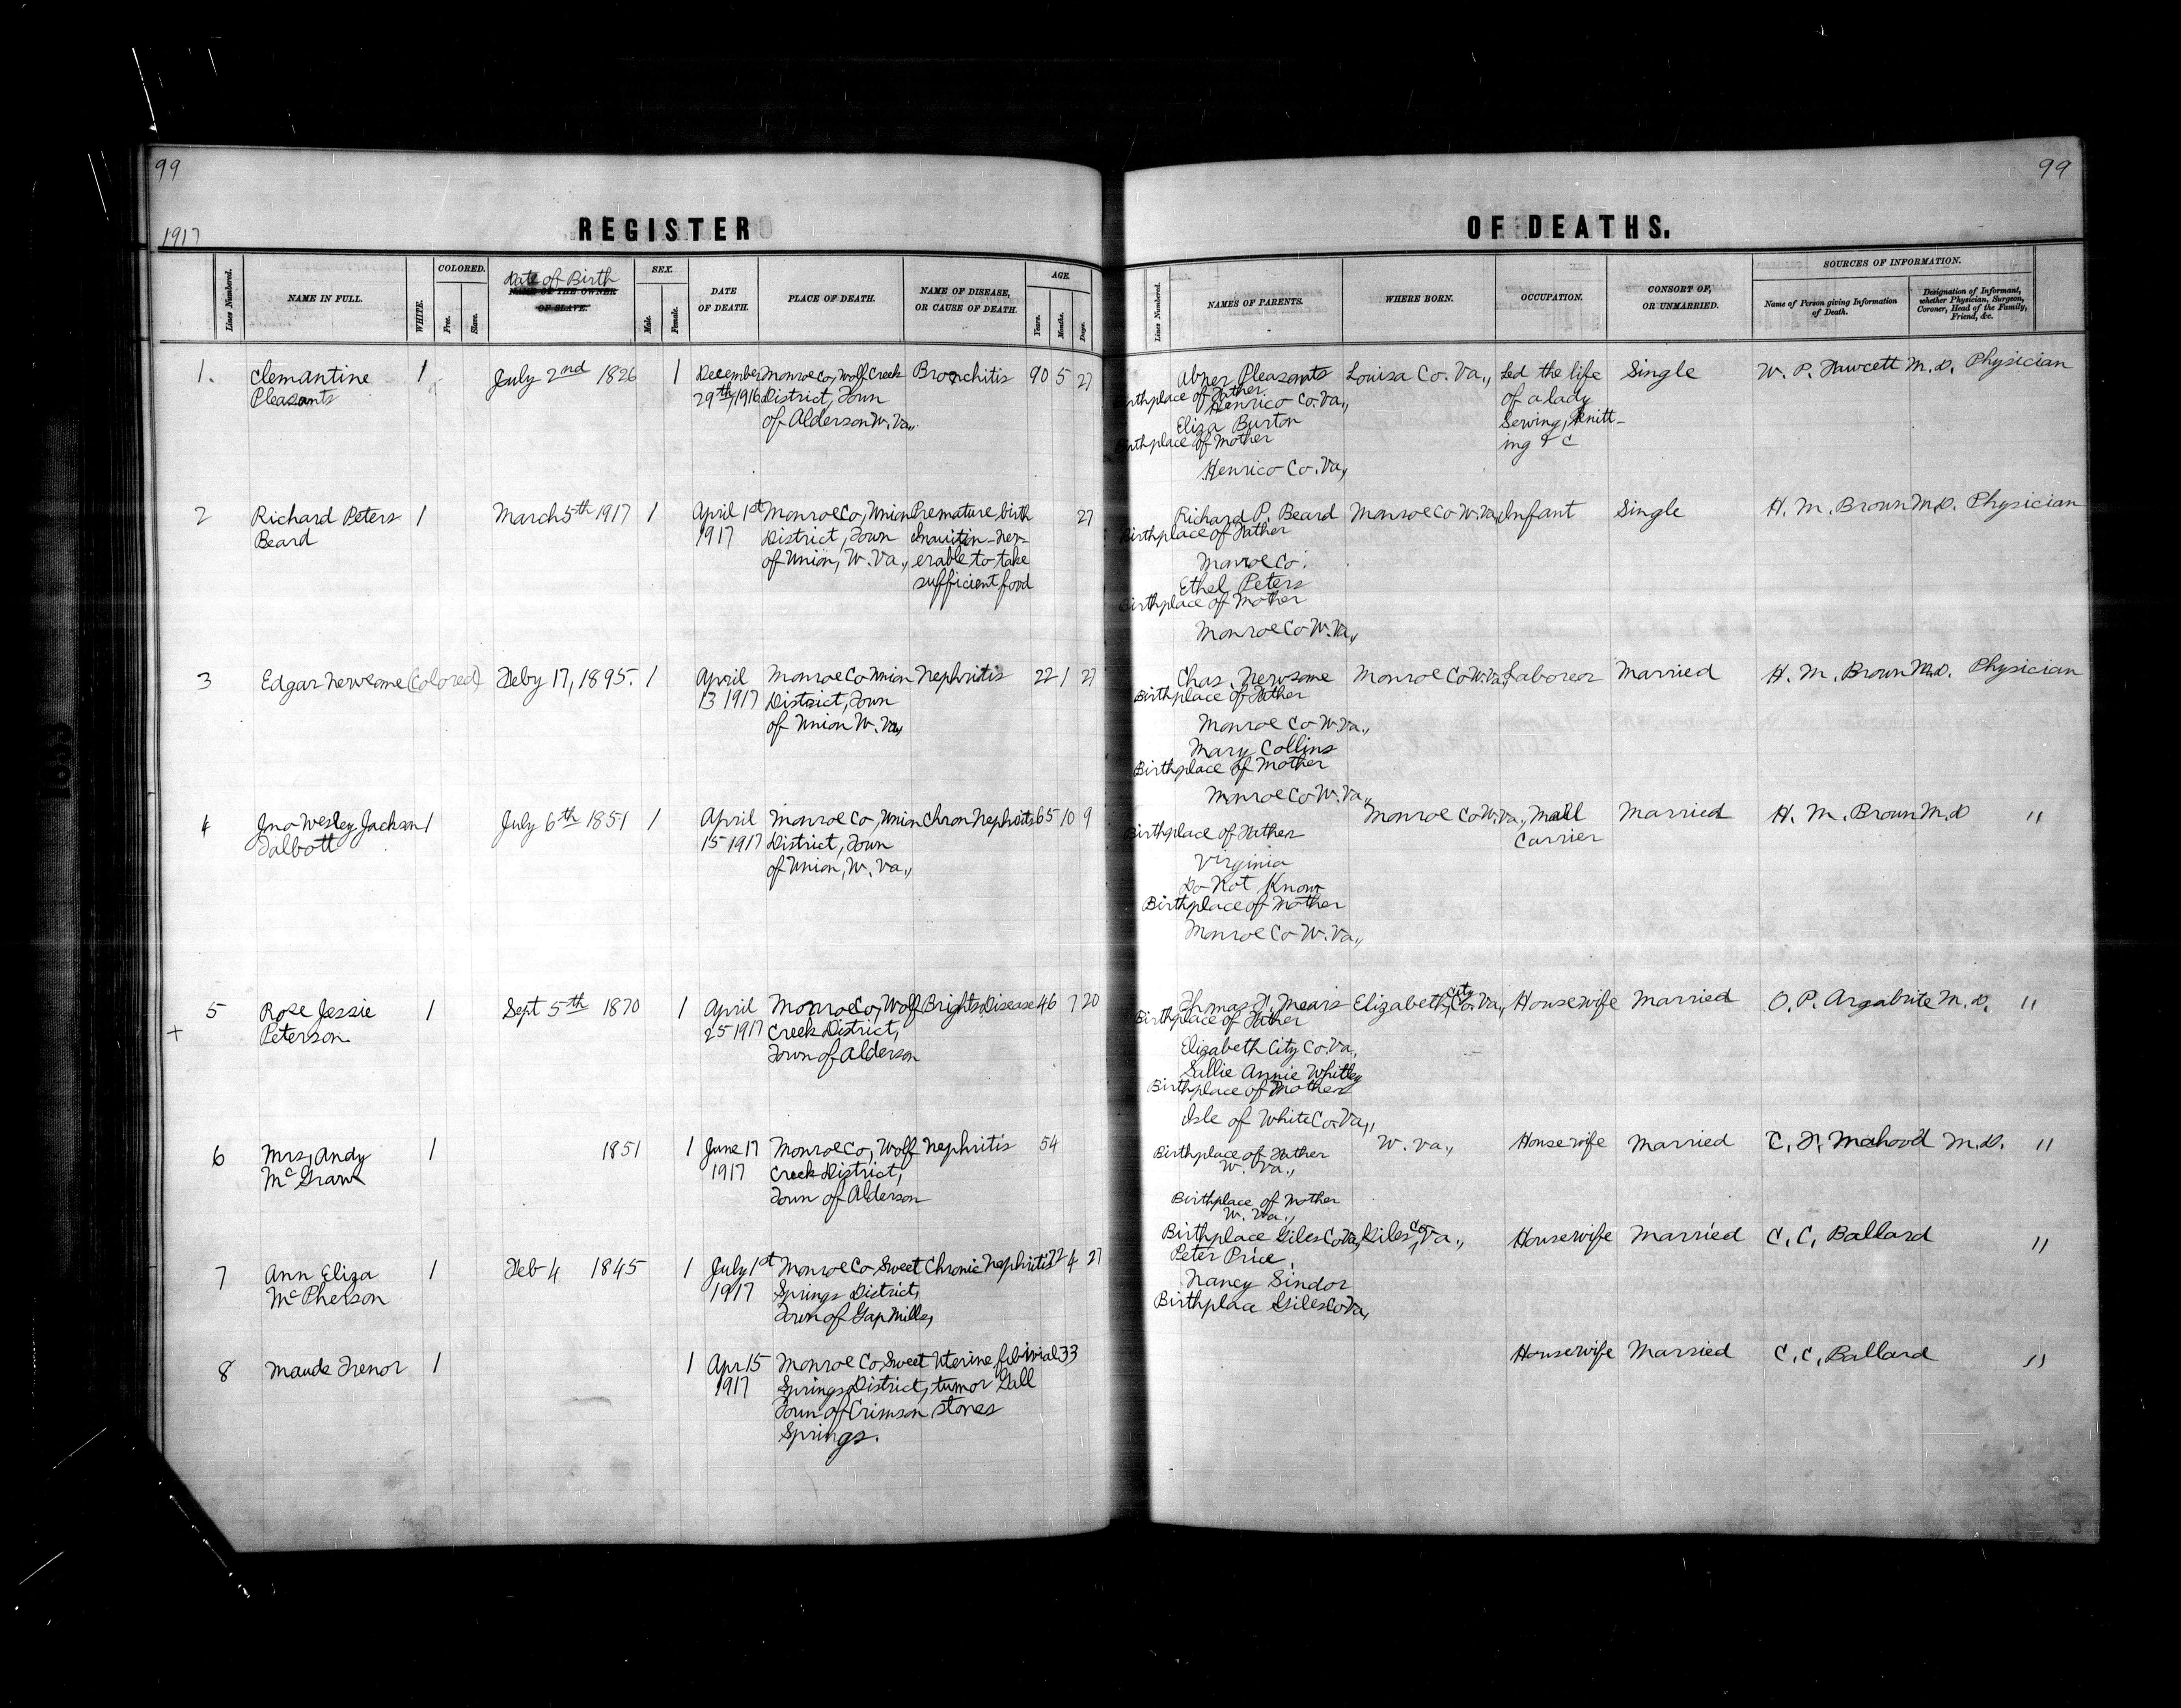 99
99
1917
REGISTER OF DEATHS.
Lines Numbered.
NAME IN FULL.
WHITE.
COLORED.
Free.
Slave.
Date of Birth
NAME OF THE OWNER
OF SLAVE.
SEX.
Male.
Female.
DATE
OF DEATH.
PLACE OF DEATH.
NAME OF DISEASE,
OR CAUSE OF DEATH.
AGE.
Years.
Months.
Days.
Lines Numbered.
NAMES OF PARENTS.
WHERE BORN.
OCCUPATION.
CONSORT OF,
OR UNMARRIED.
SOURCES OF INFORMATION.
Name of Person giving Information
of Death.
Designation of Informant,
whether Physician, Surgeon,
Coroner, Head of the Family,
Friend, &c.
1.
Clemantine
Pleasants
1
July 2nd 1826
1
December
29th, 1916
Monroe Co, Wolf Creek
District, Town
of Alderson W. Va,,
Bronchitis
90 5 27
Abner Pleasants
Birthplace of Father
Henrico Co. Va,,
Eliza Burton
Birthplace of Mother
Henrico Co. Va,,
Louisa Co. Va,,
Led the life
of a lady
Serving, Knitt-
ing & C
Single
W. P. Fawcett M. D. Physician
2
Richard Peters
Beard
1
March 5th 1917
1
April 1st
1917
Monroe Co, Union
District, Town
of Union, W. Va,,
Premature birth
erable to take
sufficient food
27
Richard P. Beard
Birthplace of Father
Monroe Co.
Ethel Peters
Birthplace of Mother
Monroe Co W. Va,,
Monroe Co W. Va,,
Infant
Single
H. M. Brown M.D. Physician
3
Edgar Newsome (Colored)
Feby 17, 1895.
1
April
13 1917
Monroe Co Union
District, Town
of Union W. Va,,
Nephritis
22 1 27
Chas. Newsome
Birthplace of Father
Monroe Co W. Va,,
Mary Collins
Birthplace of Mother
Monroe Co W. Va,,
Monroe Co W. Va,,
Laborer
Married
H. M. Brown M.D. Physician
4
Jno Wesley Jackson
Talbott
1
July 6th 1851
1
April
15 1917
Monroe Co, Union
District, Town
of Union, W. Va,,
Chron Nephritis
65 10 9
Birthplace of Father
Virginia
Do Not Know
Birthplace of Mother
Monroe Co W. Va,,
Monroe Co W. Va,,
Mail
Carrier
Married
H. M. Brown M.D "
5
+
Rose Jessie
Peterson.
1
Sept 5th 1870
1
April
25 1917
Monroe Co, Wolf
Creek District,
Town of Alderson
Brights Disease
46 7 20
Thomas N. Mears
Birthplace of Father
Elizabeth City Co. Va,,
Sallie Annie Whitley
Birthplace of Mother
Isle of White Co. Va,,
Elizabeth City Co. Va,,
Housewife
Married
O. P. Argabrite M. D. "
6
Mrs, Andy
McGraw
1
1851
1
June 17
1917
Monroe Co, Wolf
Creek District,
Town of Alderson
Nephritis
54
Birthplace of Father
W. Va,,
Birthplace of Mother
W. Va,,
W. Va,,
Housewife
Married
C. F. Mahood M.D. "
7
Ann Eliza
McPherson
1
Feb 4 1845
1
July 1st
1917
Monroe Co Sweet
Springs District,
Town of Gap Mills,
Chronic Nephritis
72 4 27
Birthplace Giles Co Va,
Peter Price,
Nancy Sindor
Birthplace Giles Co Va,
Giles Co, Va,,
Housewife
Married
C. C, Ballard "
8
Maude Trenor
1
1
Apr 15
1917
Monroe Co Sweet
Springs District,
Town of Crimson
Springs.
Uterine
tumor Gall
stones
33
Housewife
Married
C. C, Ballard "